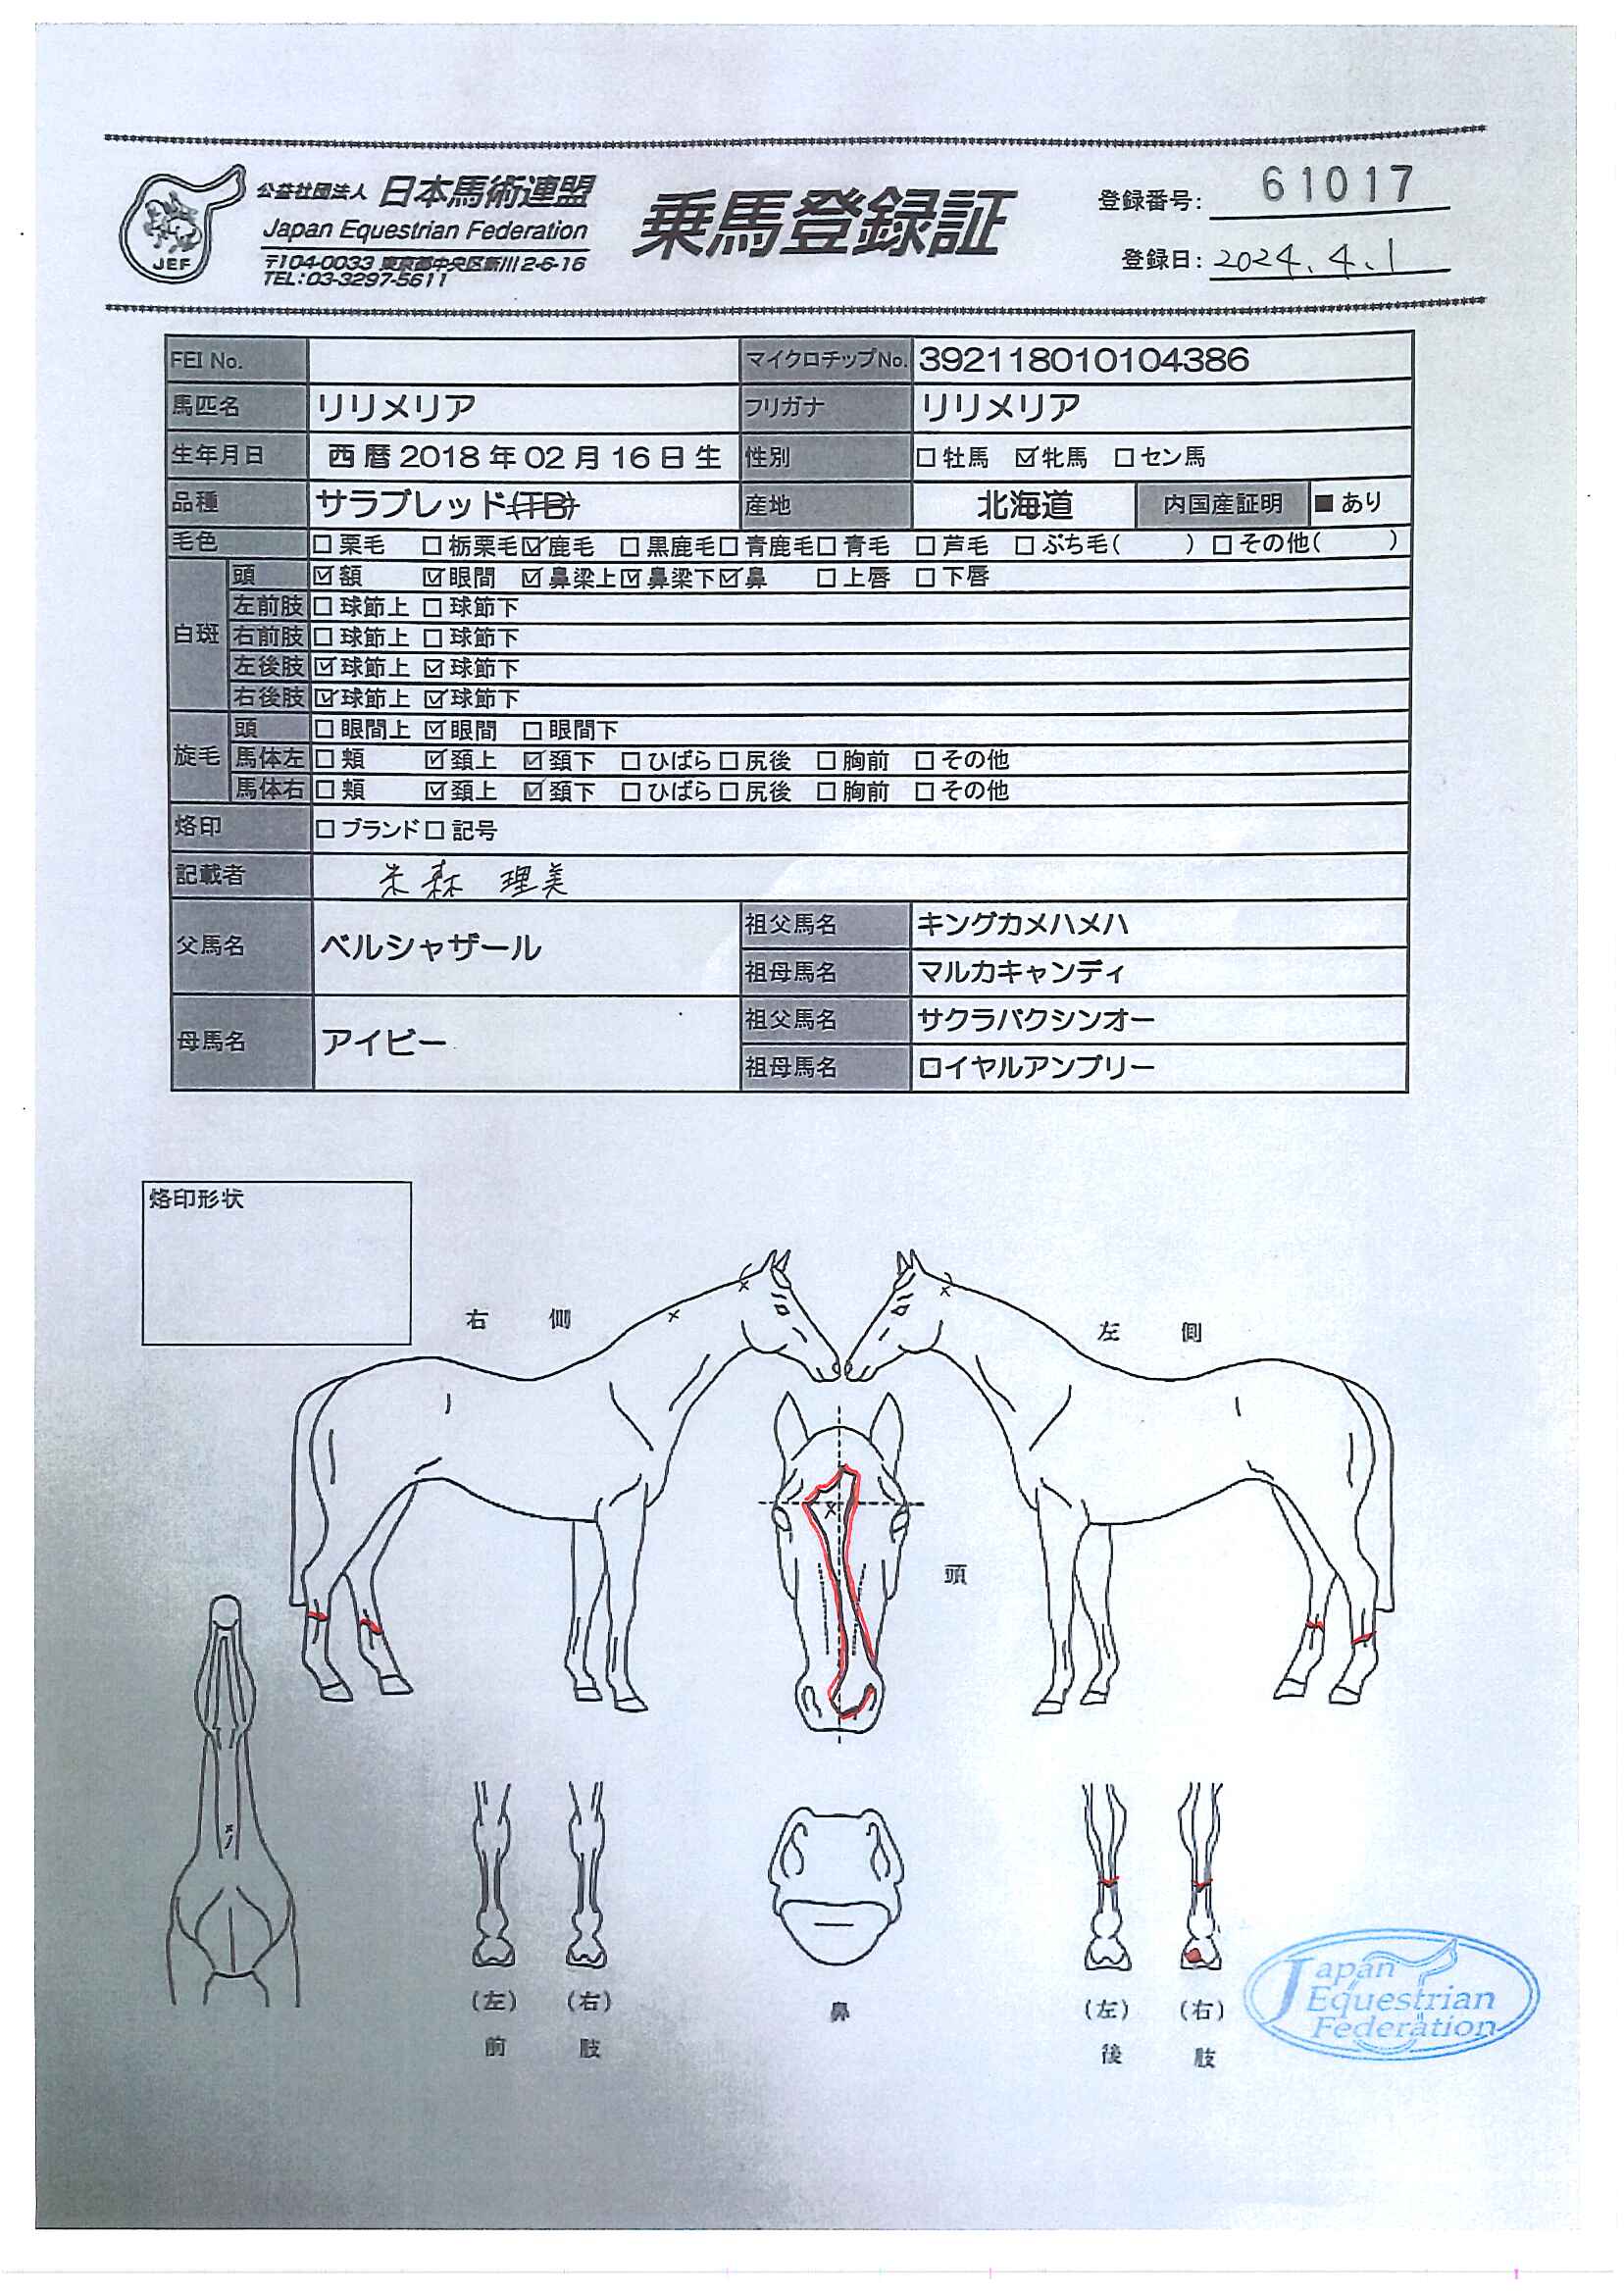 公益社団法人 日本馬術連盟
Japan Equestrian Federation
〒104-0033 東京都中央区新川2-6-16
TEL:03-3297-5611
JEF
乗馬登録証
登録番号: 61017
登録日: 2024.4.1
FEI No. マイクロチップNo. 392118010104386
馬匹名 リリメリア フリガナ リリメリア
生年月日 西暦2018年02月16日生 性別 □牡馬 ☑牝馬 □セン馬
品種 サラブレッド(TB) 産地 北海道 内国産証明 ■あり
毛色 □栗毛 □栃栗毛 ☑鹿毛 □黒鹿毛 □青鹿毛 □青毛 □芦毛 □ぶち毛( ) □その他( )
白斑 頭 ☑額 ☑眼間 ☑鼻梁上 ☑鼻梁下 ☑鼻 □上唇 □下唇
左前肢 □球節上 □球節下
右前肢 □球節上 □球節下
左後肢 ☑球節上 ☑球節下
右後肢 ☑球節上 ☑球節下
旋毛 頭 □眼間上 ☑眼間 □眼間下
馬体左 □頬 ☑頚上 ☑頚下 □ひばら □尻後 □胸前 □その他
馬体右 □頬 ☑頚上 ☑頚下 □ひばら □尻後 □胸前 □その他
烙印 □ブランド □記号
記載者 理美
父馬名 ベルシャザール 祖父馬名 キングカメハメハ
祖母馬名 マルカキャンディ
母馬名 アイビー 祖父馬名 サクラバクシンオー
祖母馬名 ロイヤルアンブリー
烙印形状
右側
左側
頭
(左) (右)
前肢
鼻
(左) (右)
後肢
Japan
Equestrian
Federation